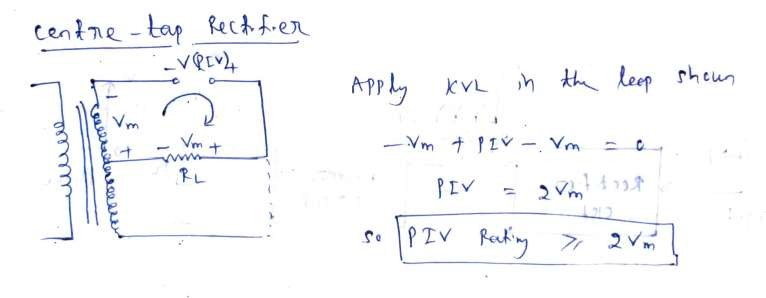 Centre-tap Rectifier
- V(PIV) +
Apply KVL in the loop shown
-
Vm
+
- Vm +
RL
- Vm + PIV - Vm = 0
PIV = 2Vm
so PIV Rating ≥ 2Vm